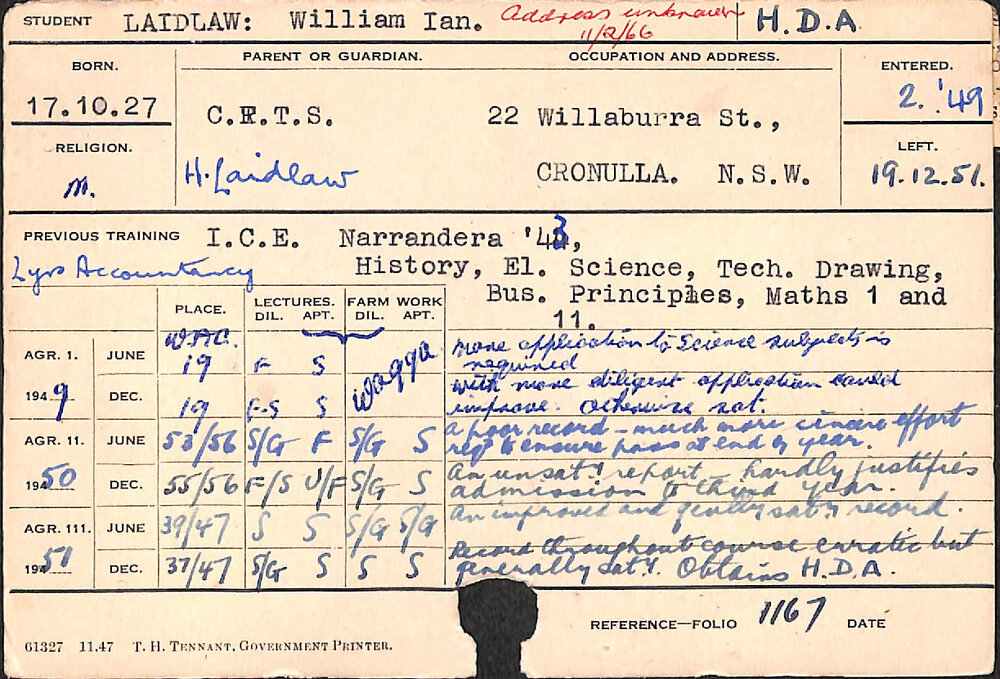 STUDENT LAIDLAW: William Ian. Address unknown H.D.A
11/2/66
BORN. PARENT OR GUARDIAN. OCCUPATION AND ADDRESS. ENTERED.
17.10.27 C.R.T.S. 22 Willaburra St., 2.'49
RELIGION. LEFT.
M. H. Laidlaw CRONULLA. N.S.W. 19.12.51.
PREVIOUS TRAINING I.C.E. Narrandera '43,
2yrs Accountancy History, El. Science, Tech. Drawing,
Bus. Principles, Maths 1 and
11.
PLACE. LECTURES. FARM WORK
DIL. APT. DIL. APT.
W.A.C. Wagga
AGR. 1. JUNE 19 F S More application to Science subjects is
required
1949 DEC. 19 F-S S With more diligent application could
improve. Otherwise sat.
AGR. 11. JUNE 53/56 S/G F S/G S A poor record - much more sincere effort
reqd to ensure pass at end of year.
1950 DEC. 55/56 F/S U/F S/G S An unsaty report - hardly justifies
admission to third year.
AGR. 111. JUNE 39/47 S S S/G S/G An improved and genlly saty record.
1951 DEC. 37/47 S/G S S S Record throughout course erratic but
generally saty. Obtains H.D.A.
REFERENCE—FOLIO 1167 DATE
61327 11.47 T. H. TENNANT, GOVERNMENT PRINTER.